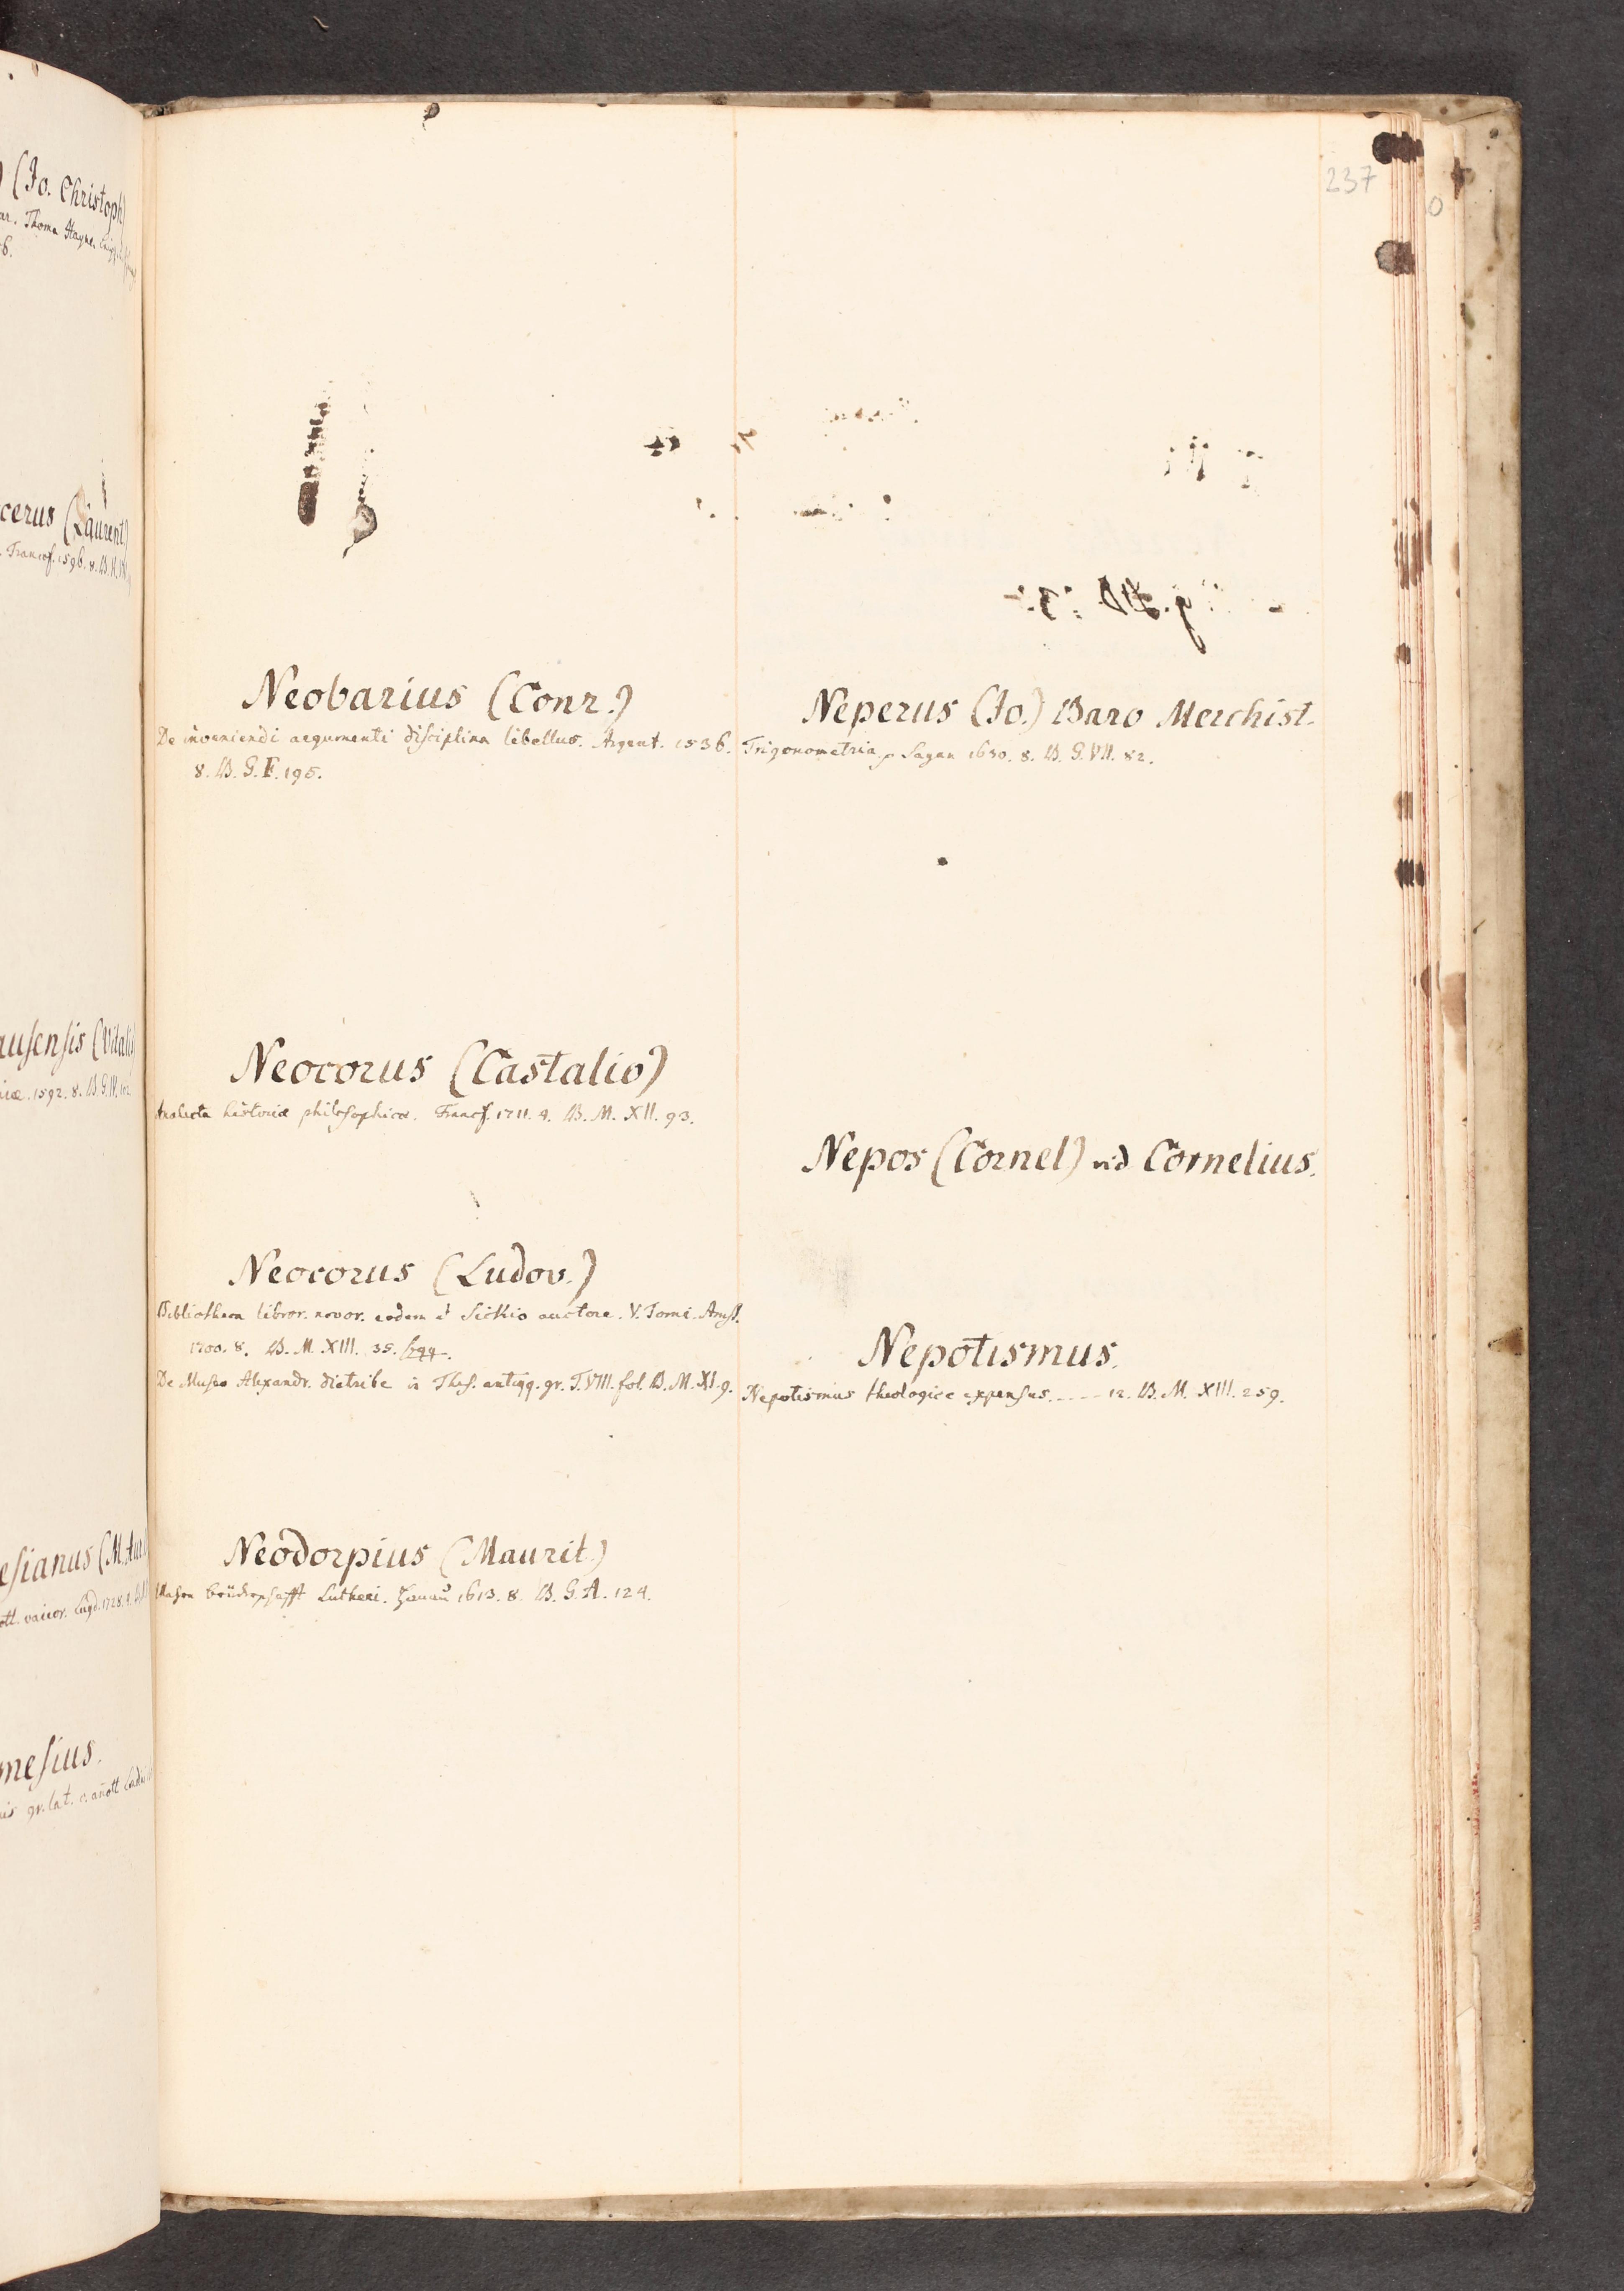 237
Neobarius (Conr.)
De inveniendi argumenti disciplina libellus. Argent. 1536.
8. B. G. F. 195.
Neocorus (Castalio)
Analecta historiæ philosophicæ. Francf. 1711. 4. B. M. XII. 93.
Neocorus (Ludov.)
Bibliotheca libror. novor. eodem et Sickio auctore. V. Tomi. Amst.
1700. 8. B. M. XIII. 35. sqq.
De Museo Alexandr. diatribe in Thes. antiqq. gr. T. VIII. fol. B. M. XI. 9.
Neodorpius (Maurit.)
brüderschafft Lutheri. Hanau 1613. 8. B. G. A. 124.
Neperus (Jo.) Baro Merchist.
Trigonometria. Sagan 1630. 8. B. G. VII. 82.
Nepos (Cornel) vid Cornelius.
Nepotismus.
Nepotismus theologice expensus. - - - - 12. B. M. XIII. 259.
(Jo. Christoph)
Thoma Hayne.
cerus (Laurent)
Francof. 1596. 8. B.
ausensis (Vitalis
1592. 8. B. G. IV. 102
esianus (M. Aur.
ott. varior. Lugd. 1728. 4.
mesius.
gr. lat. c. annott